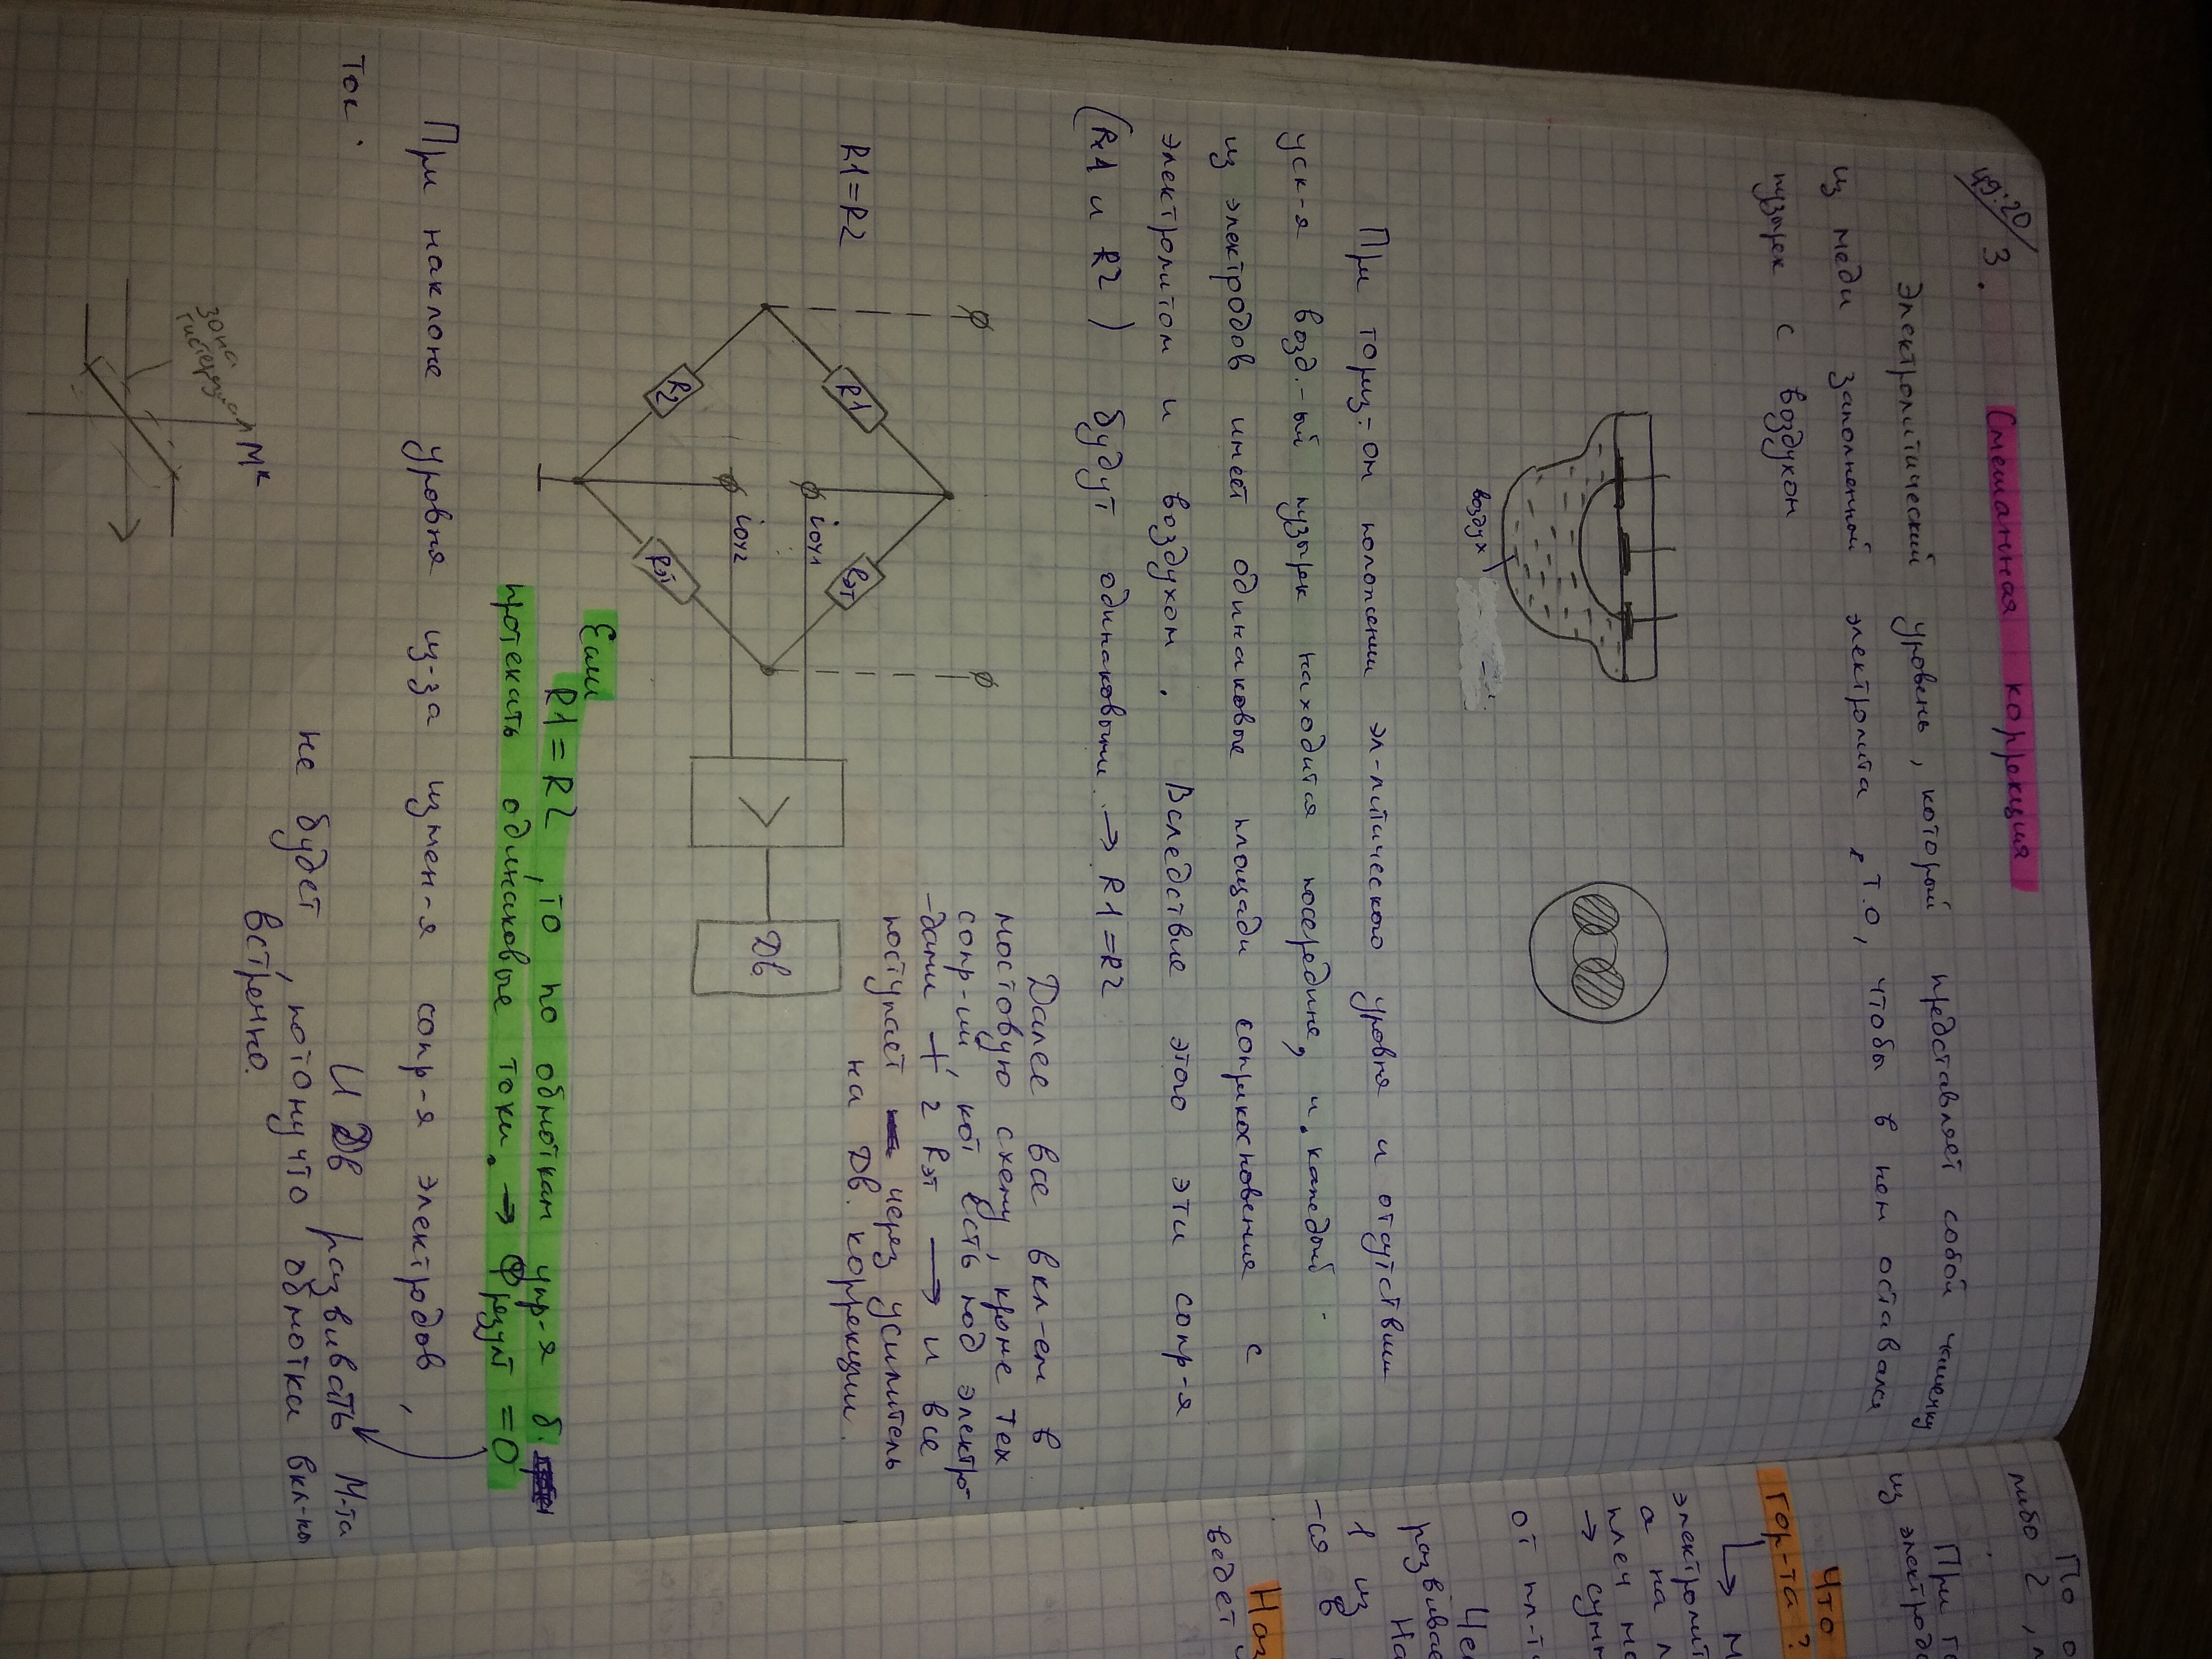 3. Смешанная коррекция
Электролитический уровень, который представляет собой чашечку
из меди заполненный электролита, т.о, чтобы в нем оставался
пузырек с воздухом
воздух
При гориз-ом положении эл-литического уровня и отсутствии
уск-я возд.-ый пузырек находится посередине, и каждый
из электродов имеет одинаковые площади соприкосновения с
электролитом и воздухом. Вследствие этого эти сопр-я
(R1 и R2) будут одинаковыми. → R1=R2
R1=R2
R1
Rэт
R2
Rэт
iоу1
iоу2
Дв
Далее все вкл-ем в
мостовую схему, кроме тех
сопр-ий, кот есть под электро-
-дами + 2 Rэт → и все
поступает через усилитель
на Дв. коррекции.
Если
R1=R2, то по обмоткам упр-я б.
протекать одинаковые токи. → Фрезульт =0
При наклоне уровня из-за измен-я сопр-я электродов,
ток.
И Дв развивать М-та
не будет, потому что обмотки вкл-ны
встречно.
зона
Мк
По о
либо 2, п
При го
из электрод
Что
Гор-та?
→ М
электролит
а на л
плеч мо
→ сумм
от пл-т
Чем
развивае
На
1 из
-ся в
Наз
ведет